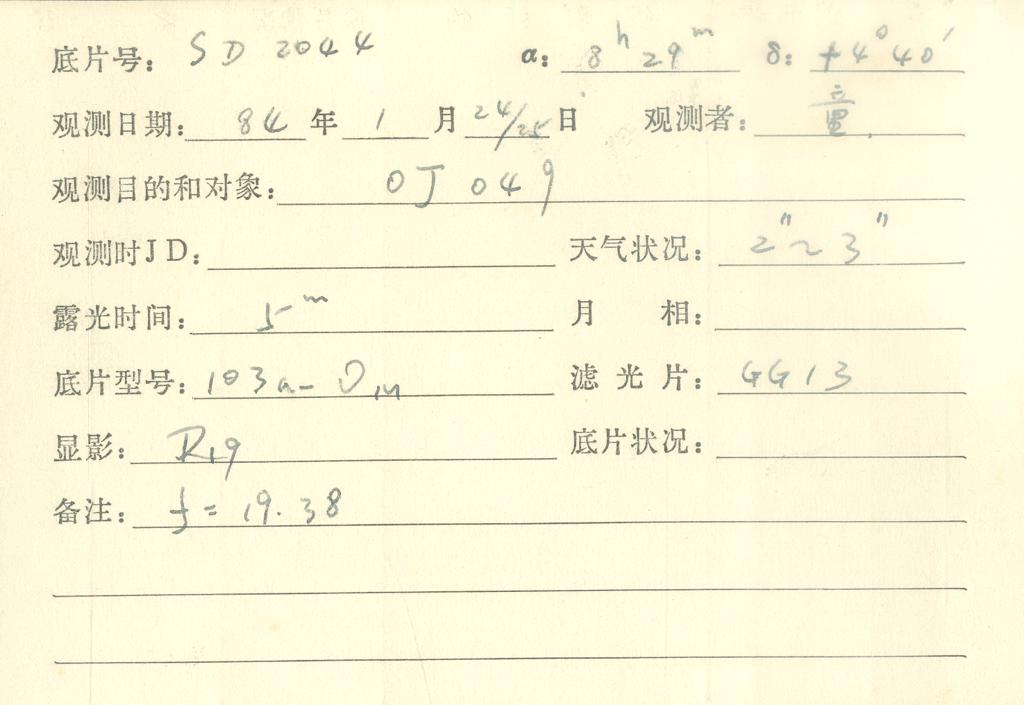 底片号: SD 2044 α: 8h 29m δ: +4° 40′
观测日期: 84 年 1 月 24/25 日 观测者: 童
观测目的和对象: OJ 049
观测时JD: 天气状况: 2"~3"
露光时间: 5m 月 相:
底片型号: 103a-O 滤光片: GG13
显影: D19 底片状况:
备注: f=19.38